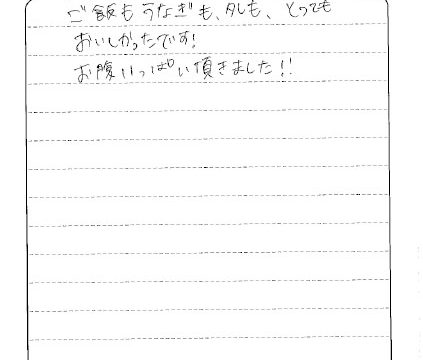 ご飯もうなぎも、タレも、とっても
おいしかったです!
お腹いっぱい頂きました!!